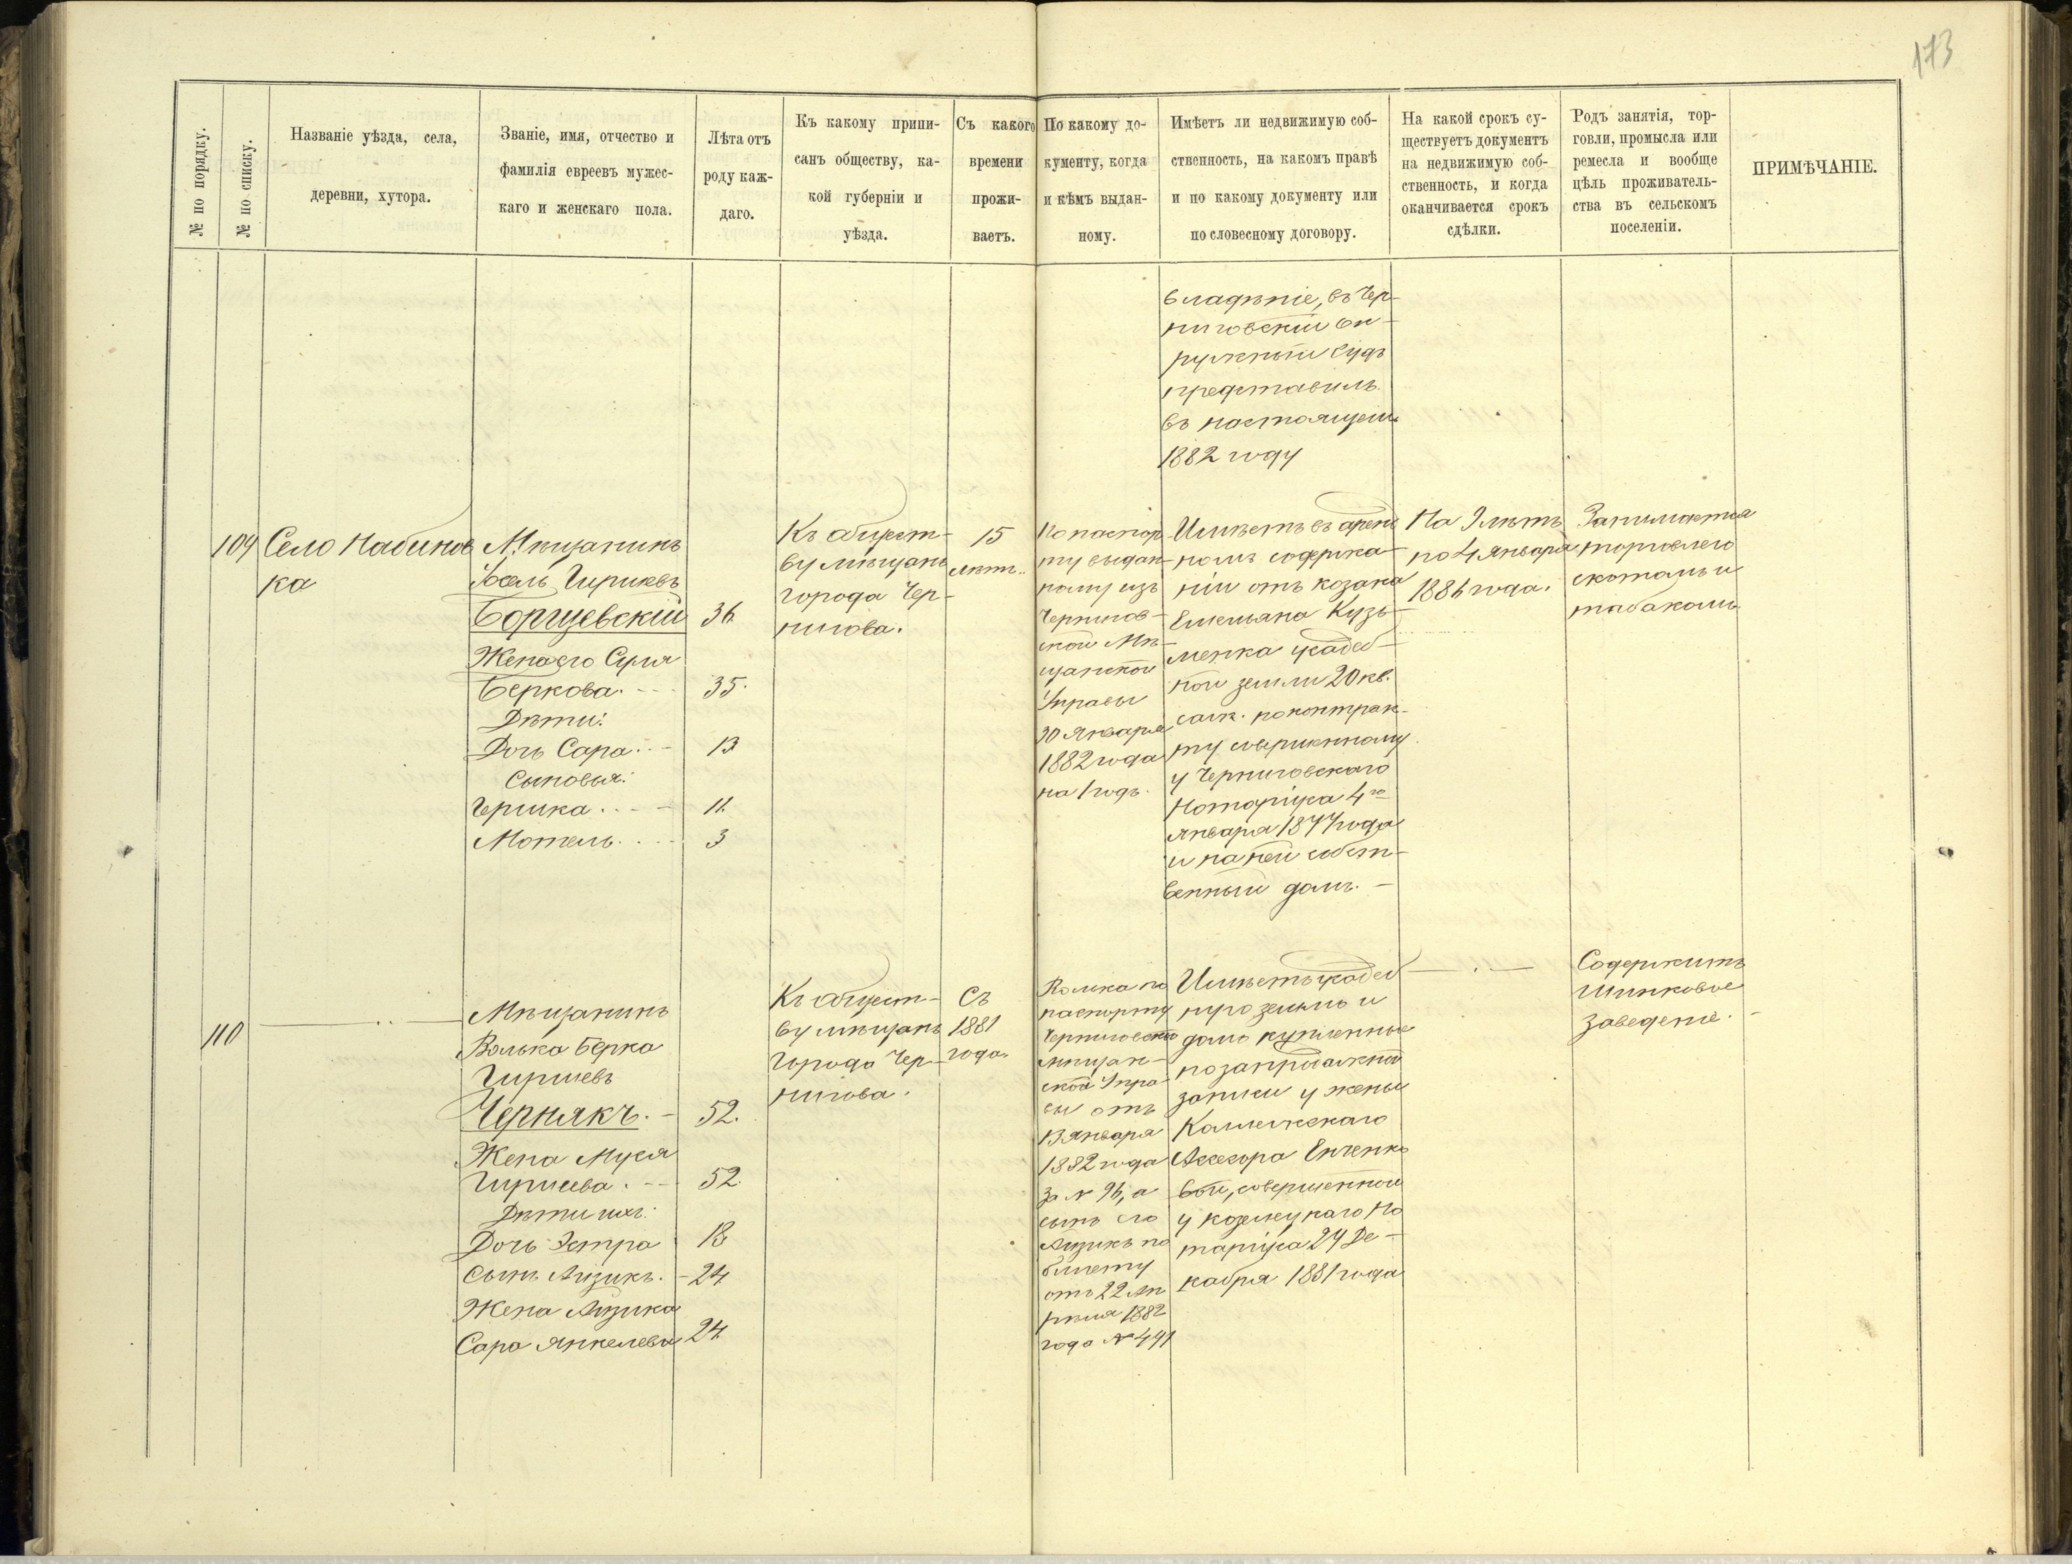 173
№ по порядку.
№ по списку.
Названіе уѣзда, села,
деревни, хутора.
Званіе, имя, отчество и
фамилія евреевъ мужес-
каго и женскаго пола.
Лѣта отъ
роду каж-
даго.
Къ какому припи-
санъ обществу, ка-
кой губерніи и
уѣзда.
Съ какого
времени
прожи-
ваетъ.
По какому до-
кументу, когда
и кѣмъ выдан-
ному.
Имѣетъ ли недвижимую соб-
ственность, на какомъ правѣ
и по какому документу или
по словесному договору.
На какой срокъ су-
ществуетъ документъ
на недвижимую соб-
ственность, и когда
оканчивается срокъ
сдѣлки.
Родъ занятія, тор-
говли, промысла или
ремесла и вообще
цѣль проживатель-
ства въ сельскомъ
поселеніи.
ПРИМѢЧАНІЕ.
владѣніе, въ Чер-
ниговскій ок-
ружный судъ
представилъ
въ настоящемъ
1882 году
109
Село Набинов
ка
Мѣщанинъ
Іосель Гиршевъ
Борщевскій
36
Жена его Суля
Беркова.
35.
Дѣти:
Дочь Сара
13
Сыновья:
Гершка
11
Мотель
3
Къ общест-
ву мѣщанъ
города Чер-
нигова.
15
лѣтъ.
По паспор
ту выдан-
ному изъ
Чернигов-
ской Мѣ-
щанской
Управы
30 Января
1882 года
на 1 годъ.
Имѣетъ въ аренд
номъ содержа-
ніи отъ козака
Емельяна Кузь-
менка усадеб-
ной земли 20 кв.
саж. по контрак-
ту совершенному
у Черниговскаго
Нотаріуса 4го
Января 1877 года
и на ней собст-
венный домъ.
На 9 лѣтъ
по 4 Января
1886 года.
Занимается
торговлею
скотомъ и
табакомъ
110
Мѣщанинъ
Волька Берка
Гиршевъ
Чернякъ.
52.
Жена Муся
Гиршева.
52
Дѣти ихъ:
Дочь Эстра
18
Сынъ Айзикъ.
24
Жена Айзика
Сара Янкелева
24
Къ общест-
ву мѣщанъ
города Чер-
нигова.
Съ
1881
года
Волька по
паспорту
Черниговской
мѣщан-
ской Упра-
вы отъ
13 Января
1882 года
за № 96, а
сынъ его
Айзикъ по
билету
отъ 22 Ап
рѣля 1882
года № 491
Имѣетъ усадеб
ную землю и
домъ купленные
по запродажной
записи у жены
Коллежскаго
Асесора Енченко
вой, совершенной
у козелецкаго Но
таріуса 24 Де-
кабря 1881 года
Содержитъ
Шинковое
заведеніе.